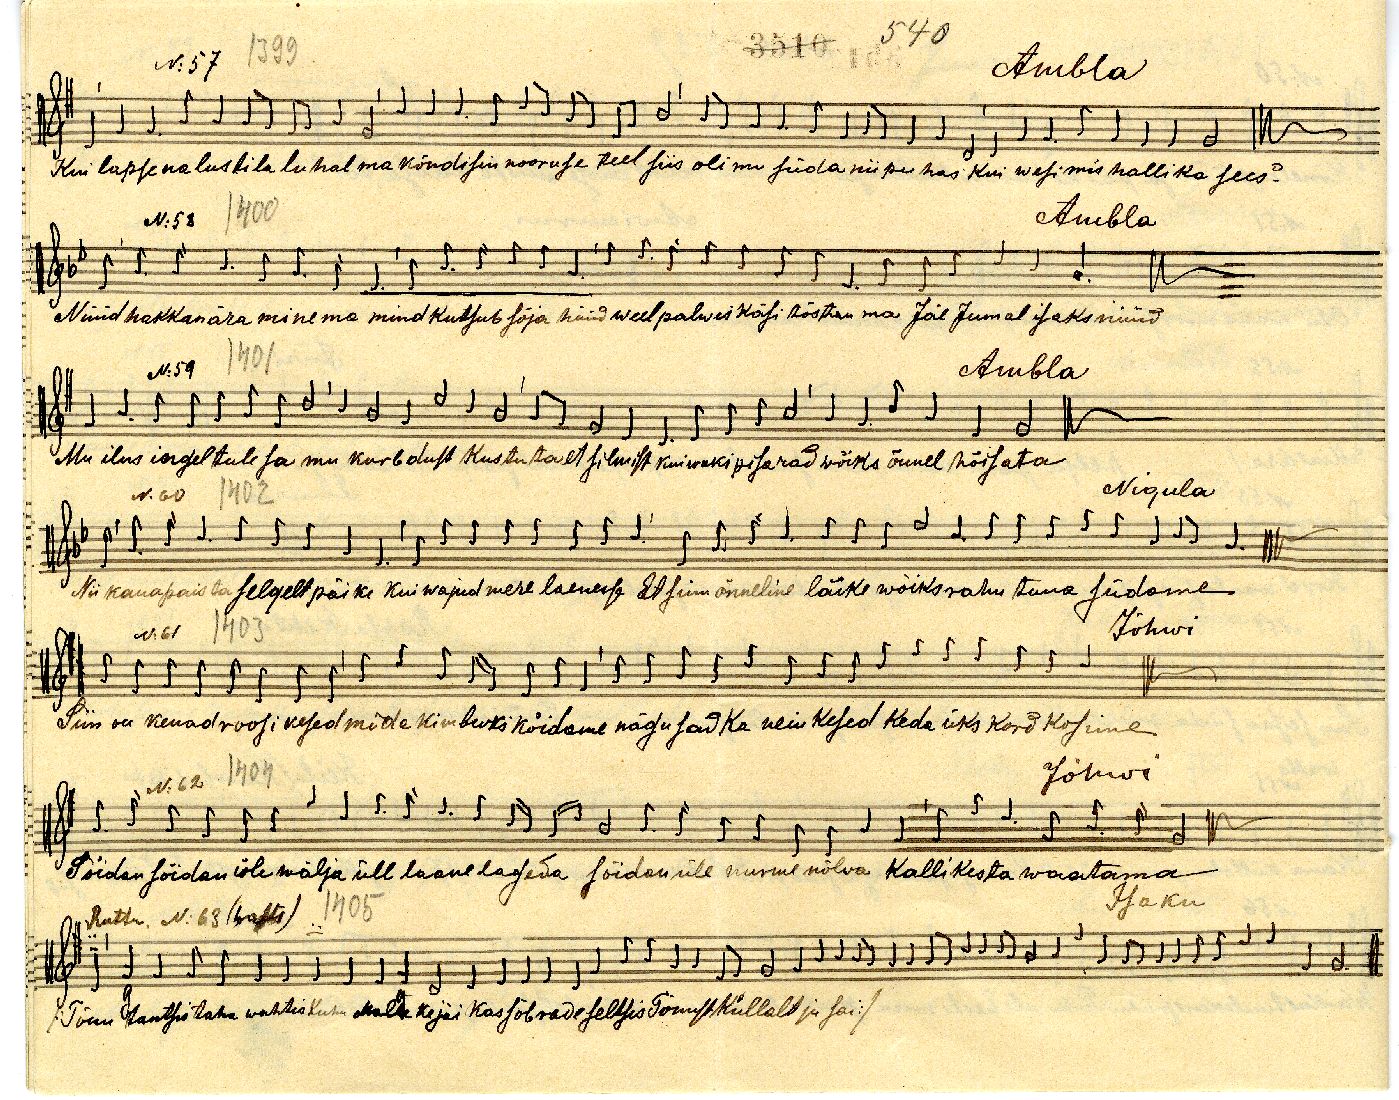 3510 540
N: 57 1399 Ambla
Kui lapsena lustila luhal ma kõndisin nooruse teel siis oli mu süda nii puhas kui wesi mis hallika sees
N: 58 1400 Ambla
Nüüd hakkan ära minema mind kutsub sõja hüüd weel palwes käsi tõstan ma Jäe Jumal isaks nüüd
N: 59 1401 Ambla
Mu ilus ingel tule sa mu kurbdust kustuta et silmist kui waki pisarad wõiks õnnel hõisata
N: 60 1402 Nigula
Nii kaua paista selgelt päike kui wajud mere laenesse Et siin õnneline läike wõiks rahu tuua südame
N: 61 1403 Jõhwi
Siin on kenad roosikesed mida kimbuks köidame nägusad ka neiukesed keda üks kord kosime
N: 62 1404 Jõhwi
Sõidan sõidan üle wälja üll laane lageda sõidan üle nurme nõlwa kallikesta waatama
Ruttu. N: 63 (walts) 1405 Isaku
/: Tõnu tantsis taha wahtis kuhu kejäi kas sõbrade seltsis Tõnust küllalt ju sai :/